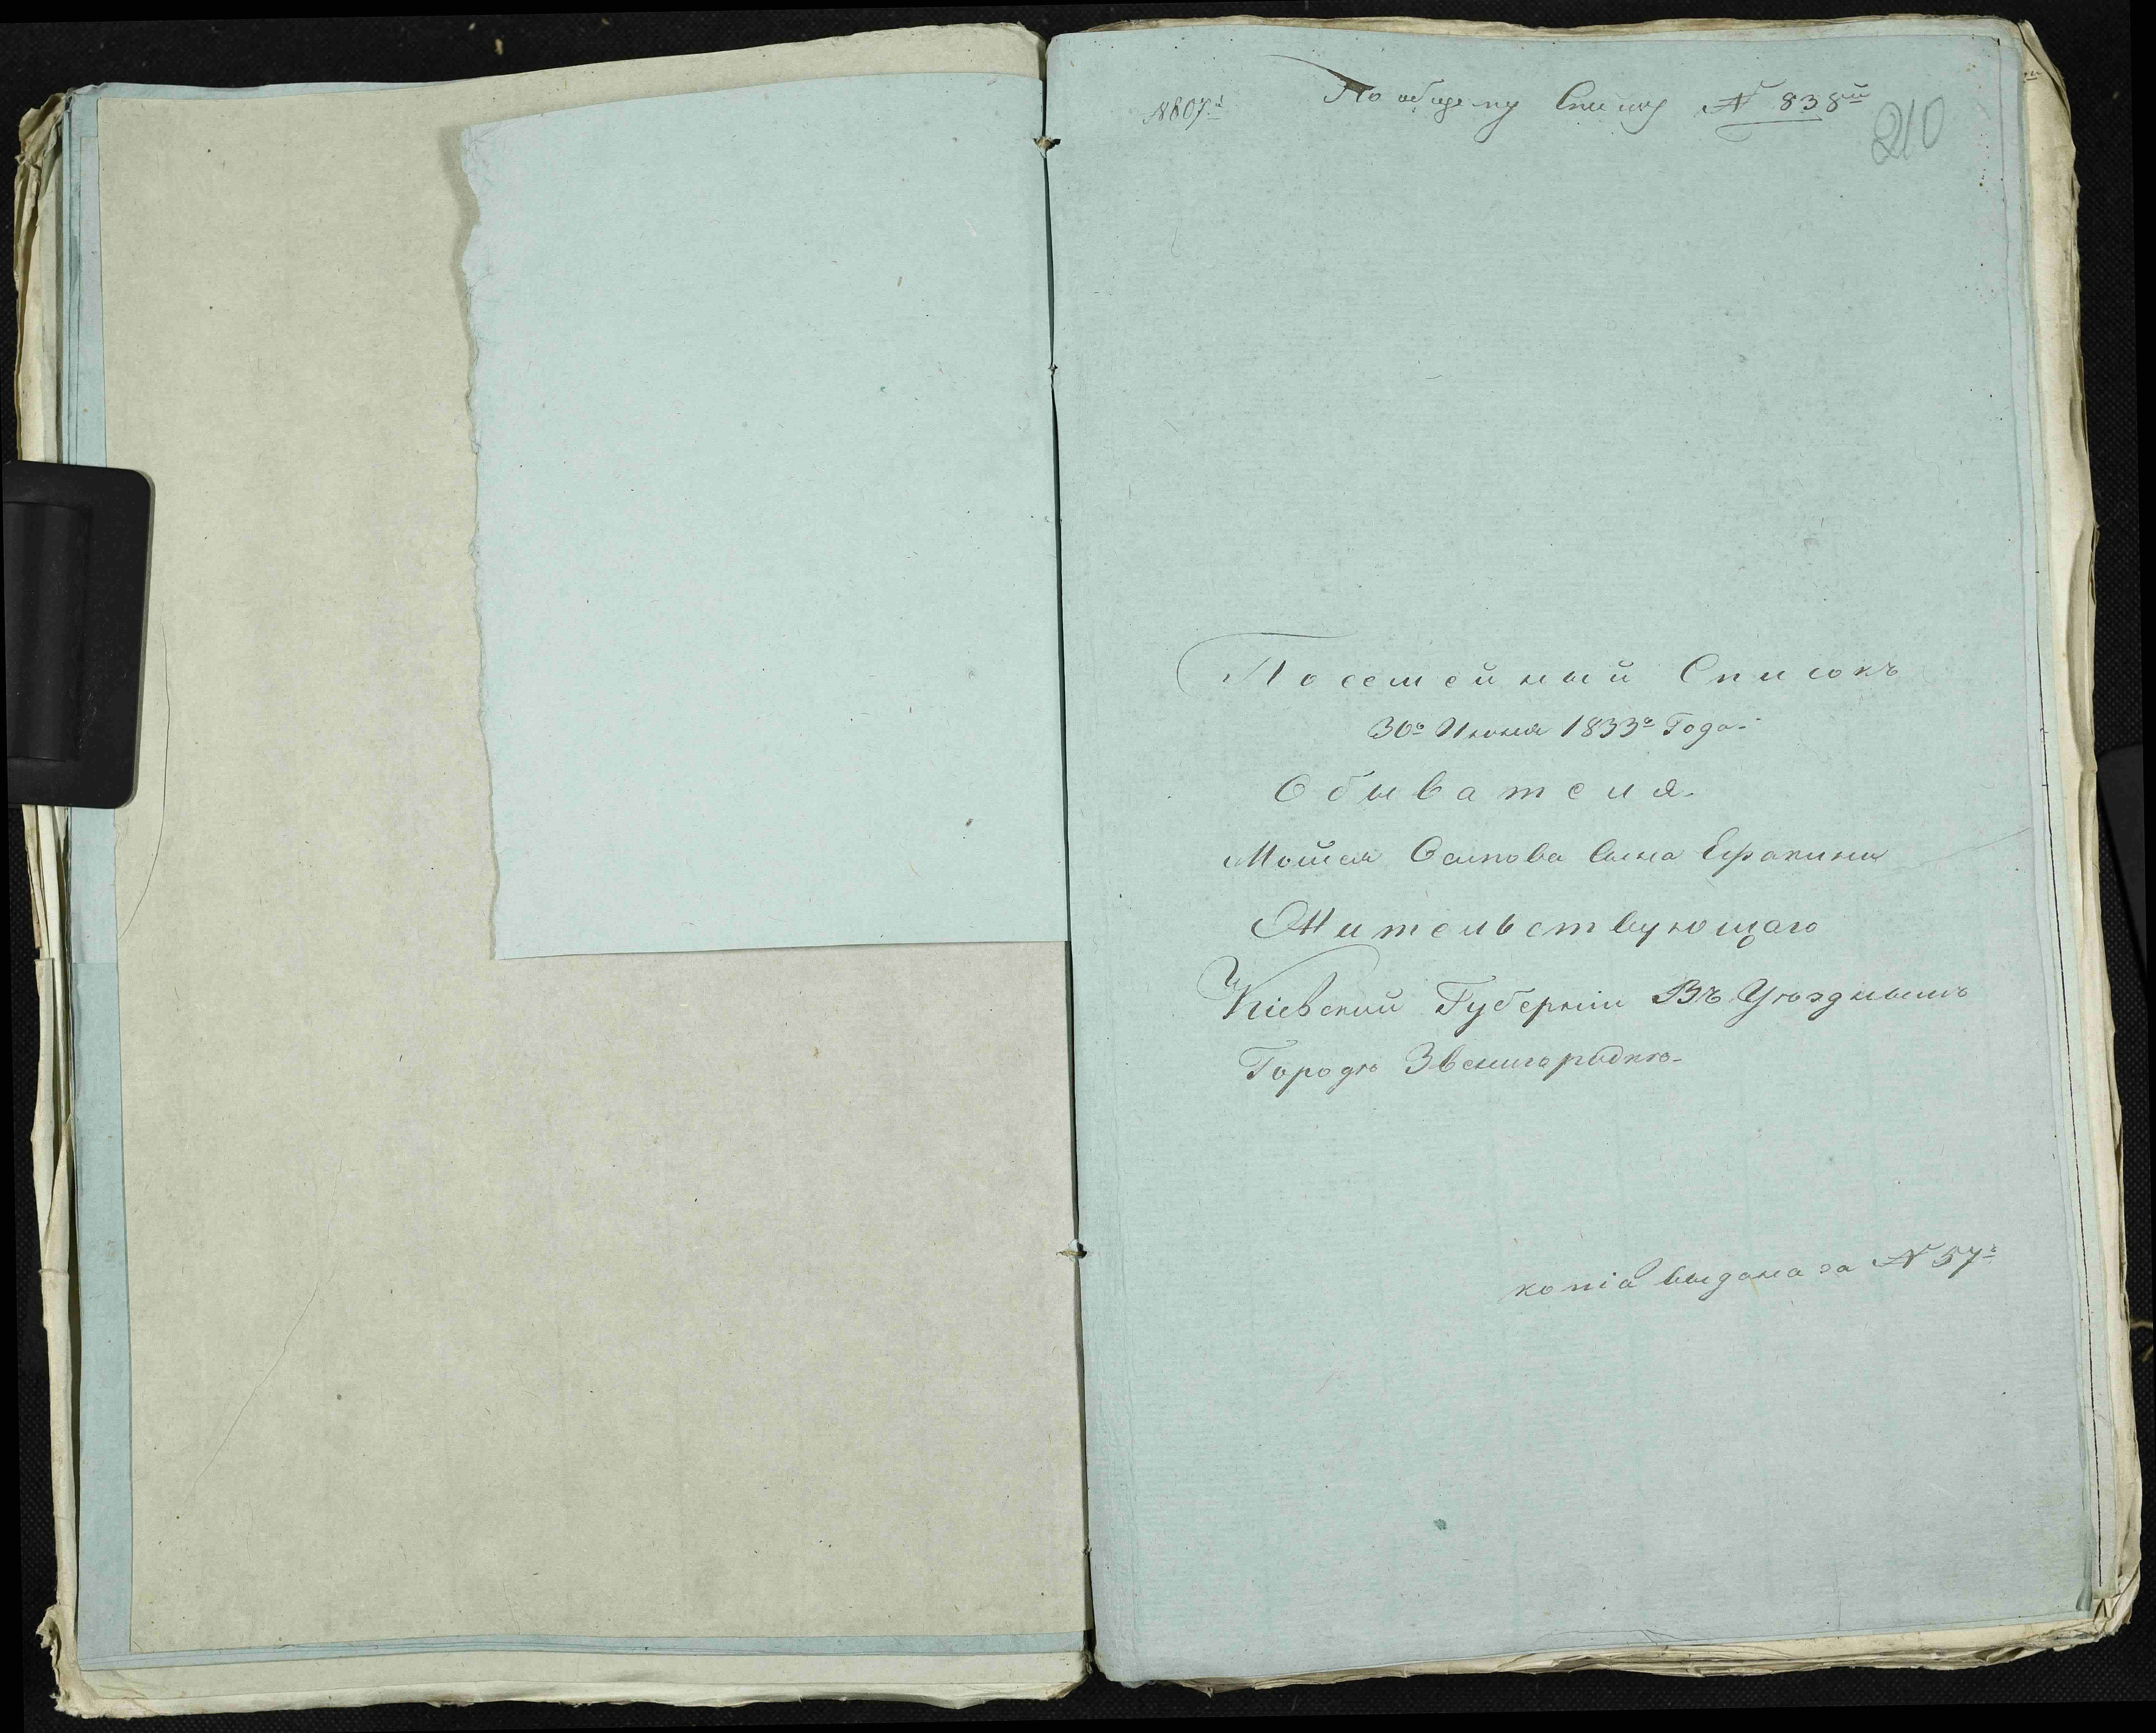 № 807й По общему Списку № 838й
210
Посемейный Списокъ
30го Июня 1833го Года.
Обывателя
Мойсея Осипова Сына
Жительствующаго
Кіевской Губерніи Въ Уѣздномъ
Городѣ Звенигородкѣ.
копіа выдана за № 57й